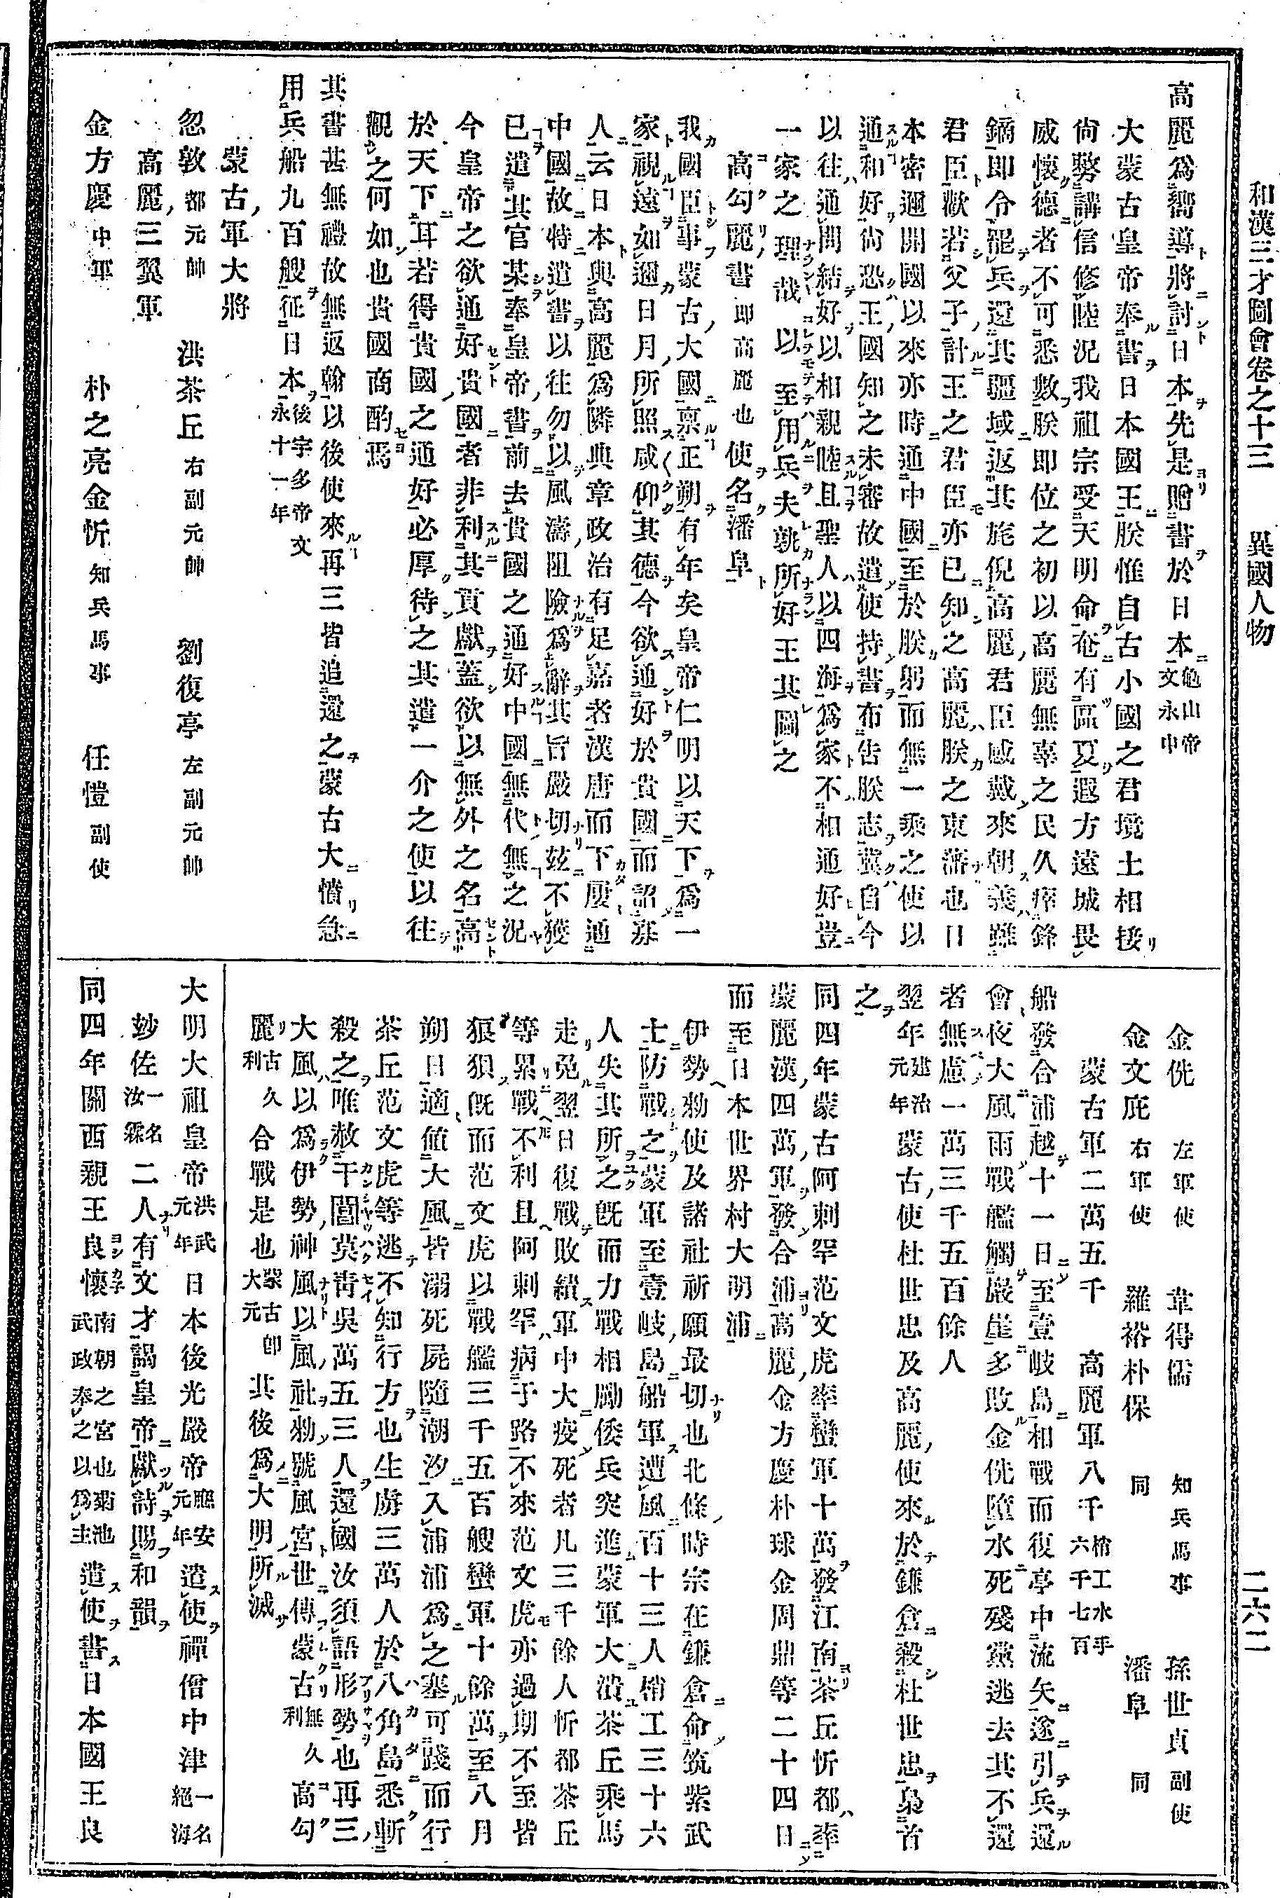 和漢三才圖會卷之十三　異國人物　二六二
高麗爲嚮導將討日本先是贈書於日本龜山帝文永中
大蒙古皇帝奉書日本國王朕惟自古小國之君境土相接
尙務講信修睦況我祖宗受天明命奄有區夏遐方遠域畏
威懷德者不可悉數朕即位之初以高麗無辜之民久瘁鋒
鏑即令罷兵還其疆域返其旄倪高麗君臣感戴來朝義雖
君臣歡若父子計王之君臣亦已知之高麗朕之東藩也日
本密邇開國以來亦時通中國至於朕躬而無一乘之使以
通和好尙恐王國知之未審故遣使持書布告朕志冀自今
以往通問結好以相親睦且聖人以四海爲家不相通好豈
一家之理哉以至用兵夫孰所好王其圖之
高勾麗書即高麗也使名潘阜
我國臣事蒙古大國禀正朔有年矣皇帝仁明以天下爲一
家視遠如邇日月所照咸仰其德今欲通好於貴國而詔寡
人云日本與高麗爲隣典章政治有足嘉者漢唐而下屢通
中國故特遣書以往勿以風濤阻險爲辭其旨嚴切玆不獲
已遣其官某奉皇帝書前去貴國之通好中國無代無之況
今皇帝之欲通好貴國者非利其貢獻蓋欲以無外之名高
於天下耳若得貴國之通好必厚待之其遣一介之使以往
觀之何如也貴國商酌焉
其書甚無禮故無返翰以後使來再三皆追還之蒙古大憤怠
用兵船九百艘征日本後宇多帝文永十一年
蒙古軍大將
忽敦都元帥　洪茶丘右副元帥　劉復亭左副元帥
高麗三翼軍
金方慶中軍　朴之亮金忻知兵馬事　任愷副使
金侊左軍使　韋得儒知兵馬事　孫世貞副使
金文庇右軍使　羅裕朴保同　潘阜同
蒙古軍二萬五千　高麗軍八千梢工水手六千七百
船發合浦越十一日至壹岐島相戰而復亭中流矢遂引兵還
會夜大風雨戰艦觸巖崖多敗金侊墮水死殘黨逃去其不還
者無慮一萬三千五百餘人
翌年建治元年蒙古使杜世忠及高麗使來於鎌倉殺杜世忠梟首
之
同四年蒙古阿刺罕范文虎率蠻軍十萬發江南茶丘忻都率
蒙麗漢四萬軍發合浦高麗金方慶朴球金周鼎等二十四日
而至日本世界村大明浦
伊勢勅使及諸社祈願最切也北條時宗在鎌倉命筑紫武
士防戰之蒙軍至壹岐島船軍遭風百十三人梢工三十六
人失其所之既而力戰相勵倭兵突進蒙軍大潰茶丘乘馬
走免翌日復戰敗績軍中大疫死者凡三千餘人忻都茶丘
等累戰不利且阿刺罕病于路不來范文虎亦過期不至皆
狼狽既而范文虎以戰艦三千五百艘蠻軍十餘萬至八月
朔日適値大風皆溺死屍隨潮汐入浦浦爲之塞可踐而行
茶丘范文虎等逃不知行方也生虜三萬人於八角島悉斬
殺之唯赦干閶莫靑吳萬五三人還國汝須語形勢也再三
大風以爲伊勢神風以風社勅號風宮世傳蒙古無久利高勾
麗古久利合戰是也蒙古即大元其後爲大明所滅
大明大祖皇帝洪武元年日本後光嚴帝應安元年遣使禪僧中津一名絕海
妙佐一名汝霖二人有文才謁皇帝獻詩賜和韻
同四年關西親王良懷南朝之宮也菊池武政奉之以爲主遣使書日本國王良